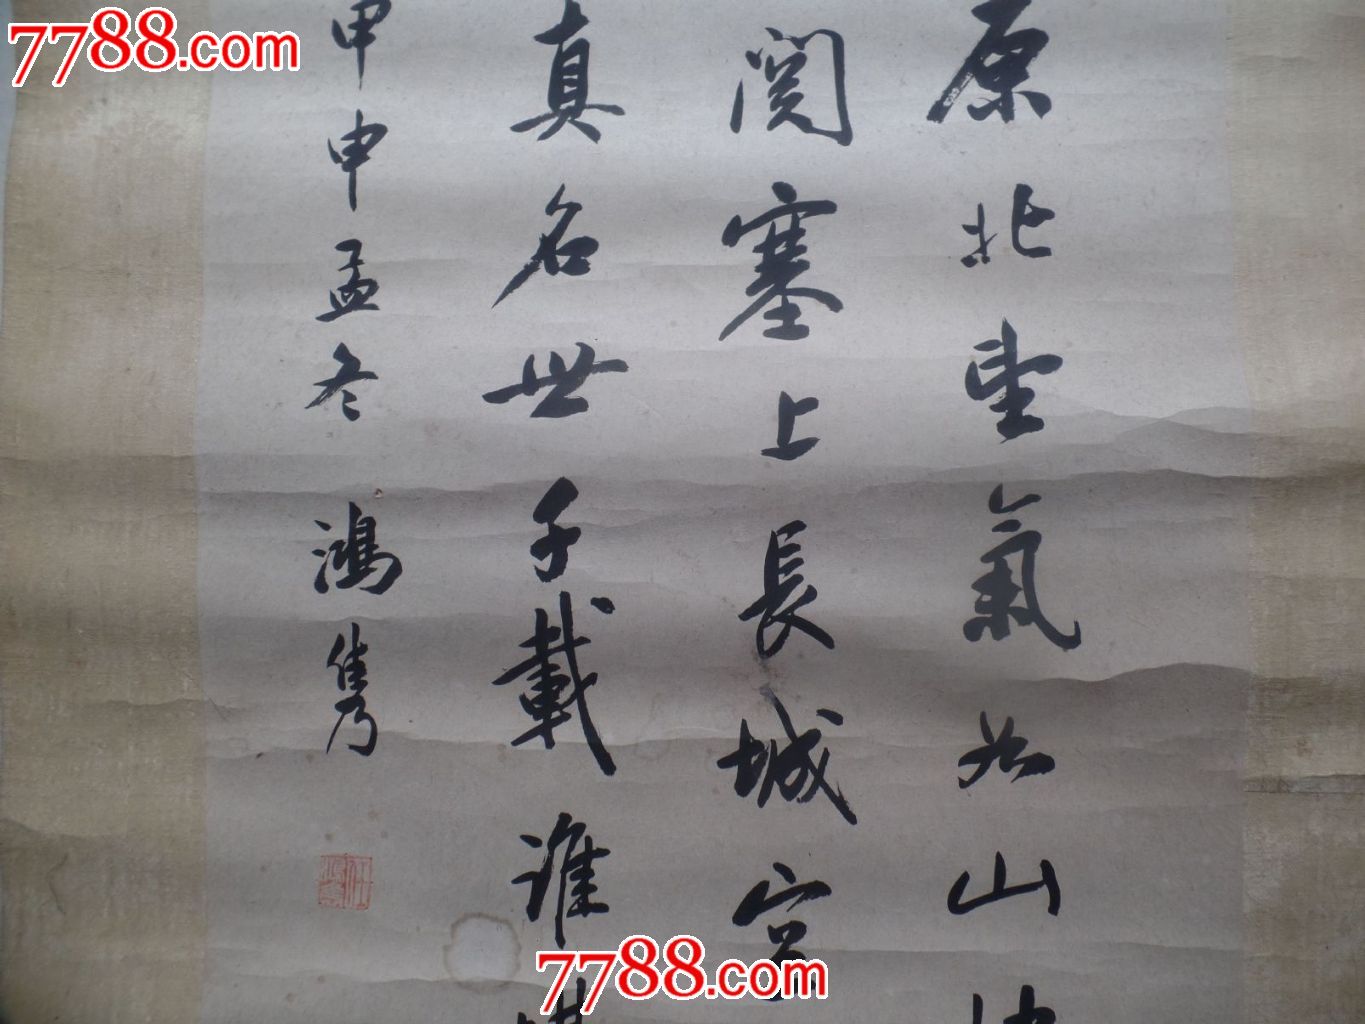 7788.com
原北望氣如山
関塞上長城空
真名世千載誰堪
甲申孟冬 鴻雋
7788.com